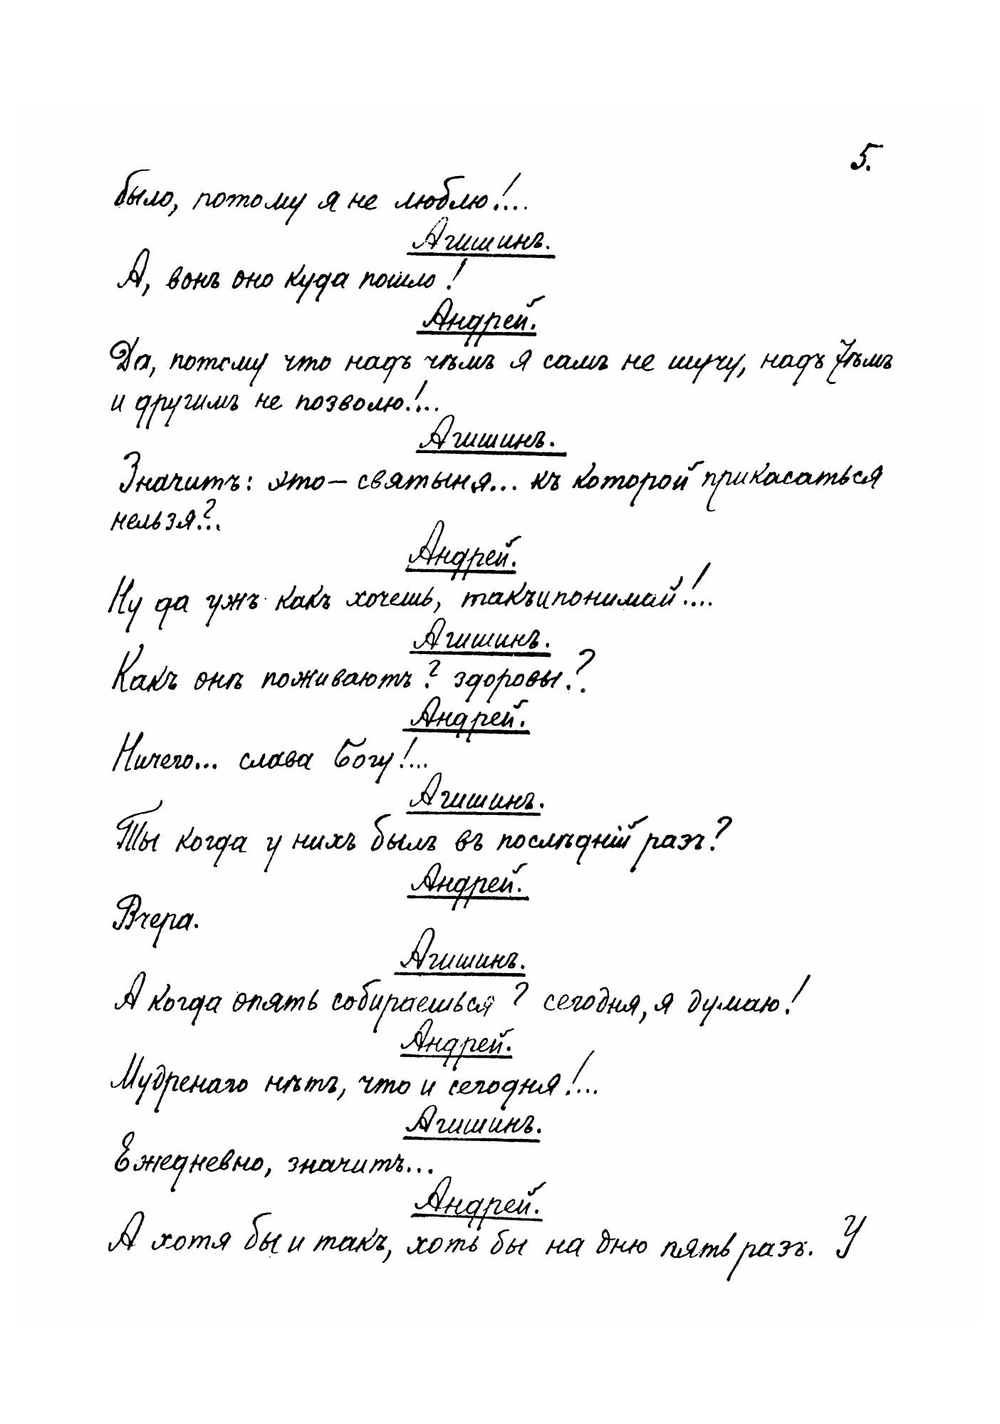 5.
было, потому я не люблю!...
Агишинъ.
А, вонъ оно куда пошло!
Андрей.
Да, потому что надъ чѣмъ я самъ не шучу, надъ тѣмъ
и другимъ не позволю!...
Агишинъ.
Значитъ: это — святыня... къ которой прикасаться
нельзя?..
Андрей.
Ну да ужъ какъ хочешь, такъ и понимай!...
Агишинъ.
Какъ онѣ поживаютъ? здоровы?
Андрей.
Ничего... слава Богу!...
Агишинъ.
Ты когда у нихъ былъ въ послѣдній разъ?
Андрей.
Вчера.
Агишинъ.
А когда опять собираешься? сегодня, я думаю!
Андрей.
Мудренаго нѣтъ, что и сегодня!...
Агишинъ.
Ежедневно, значитъ...
Андрей.
А хотя бы и такъ, хоть бы на дню пять разъ. У